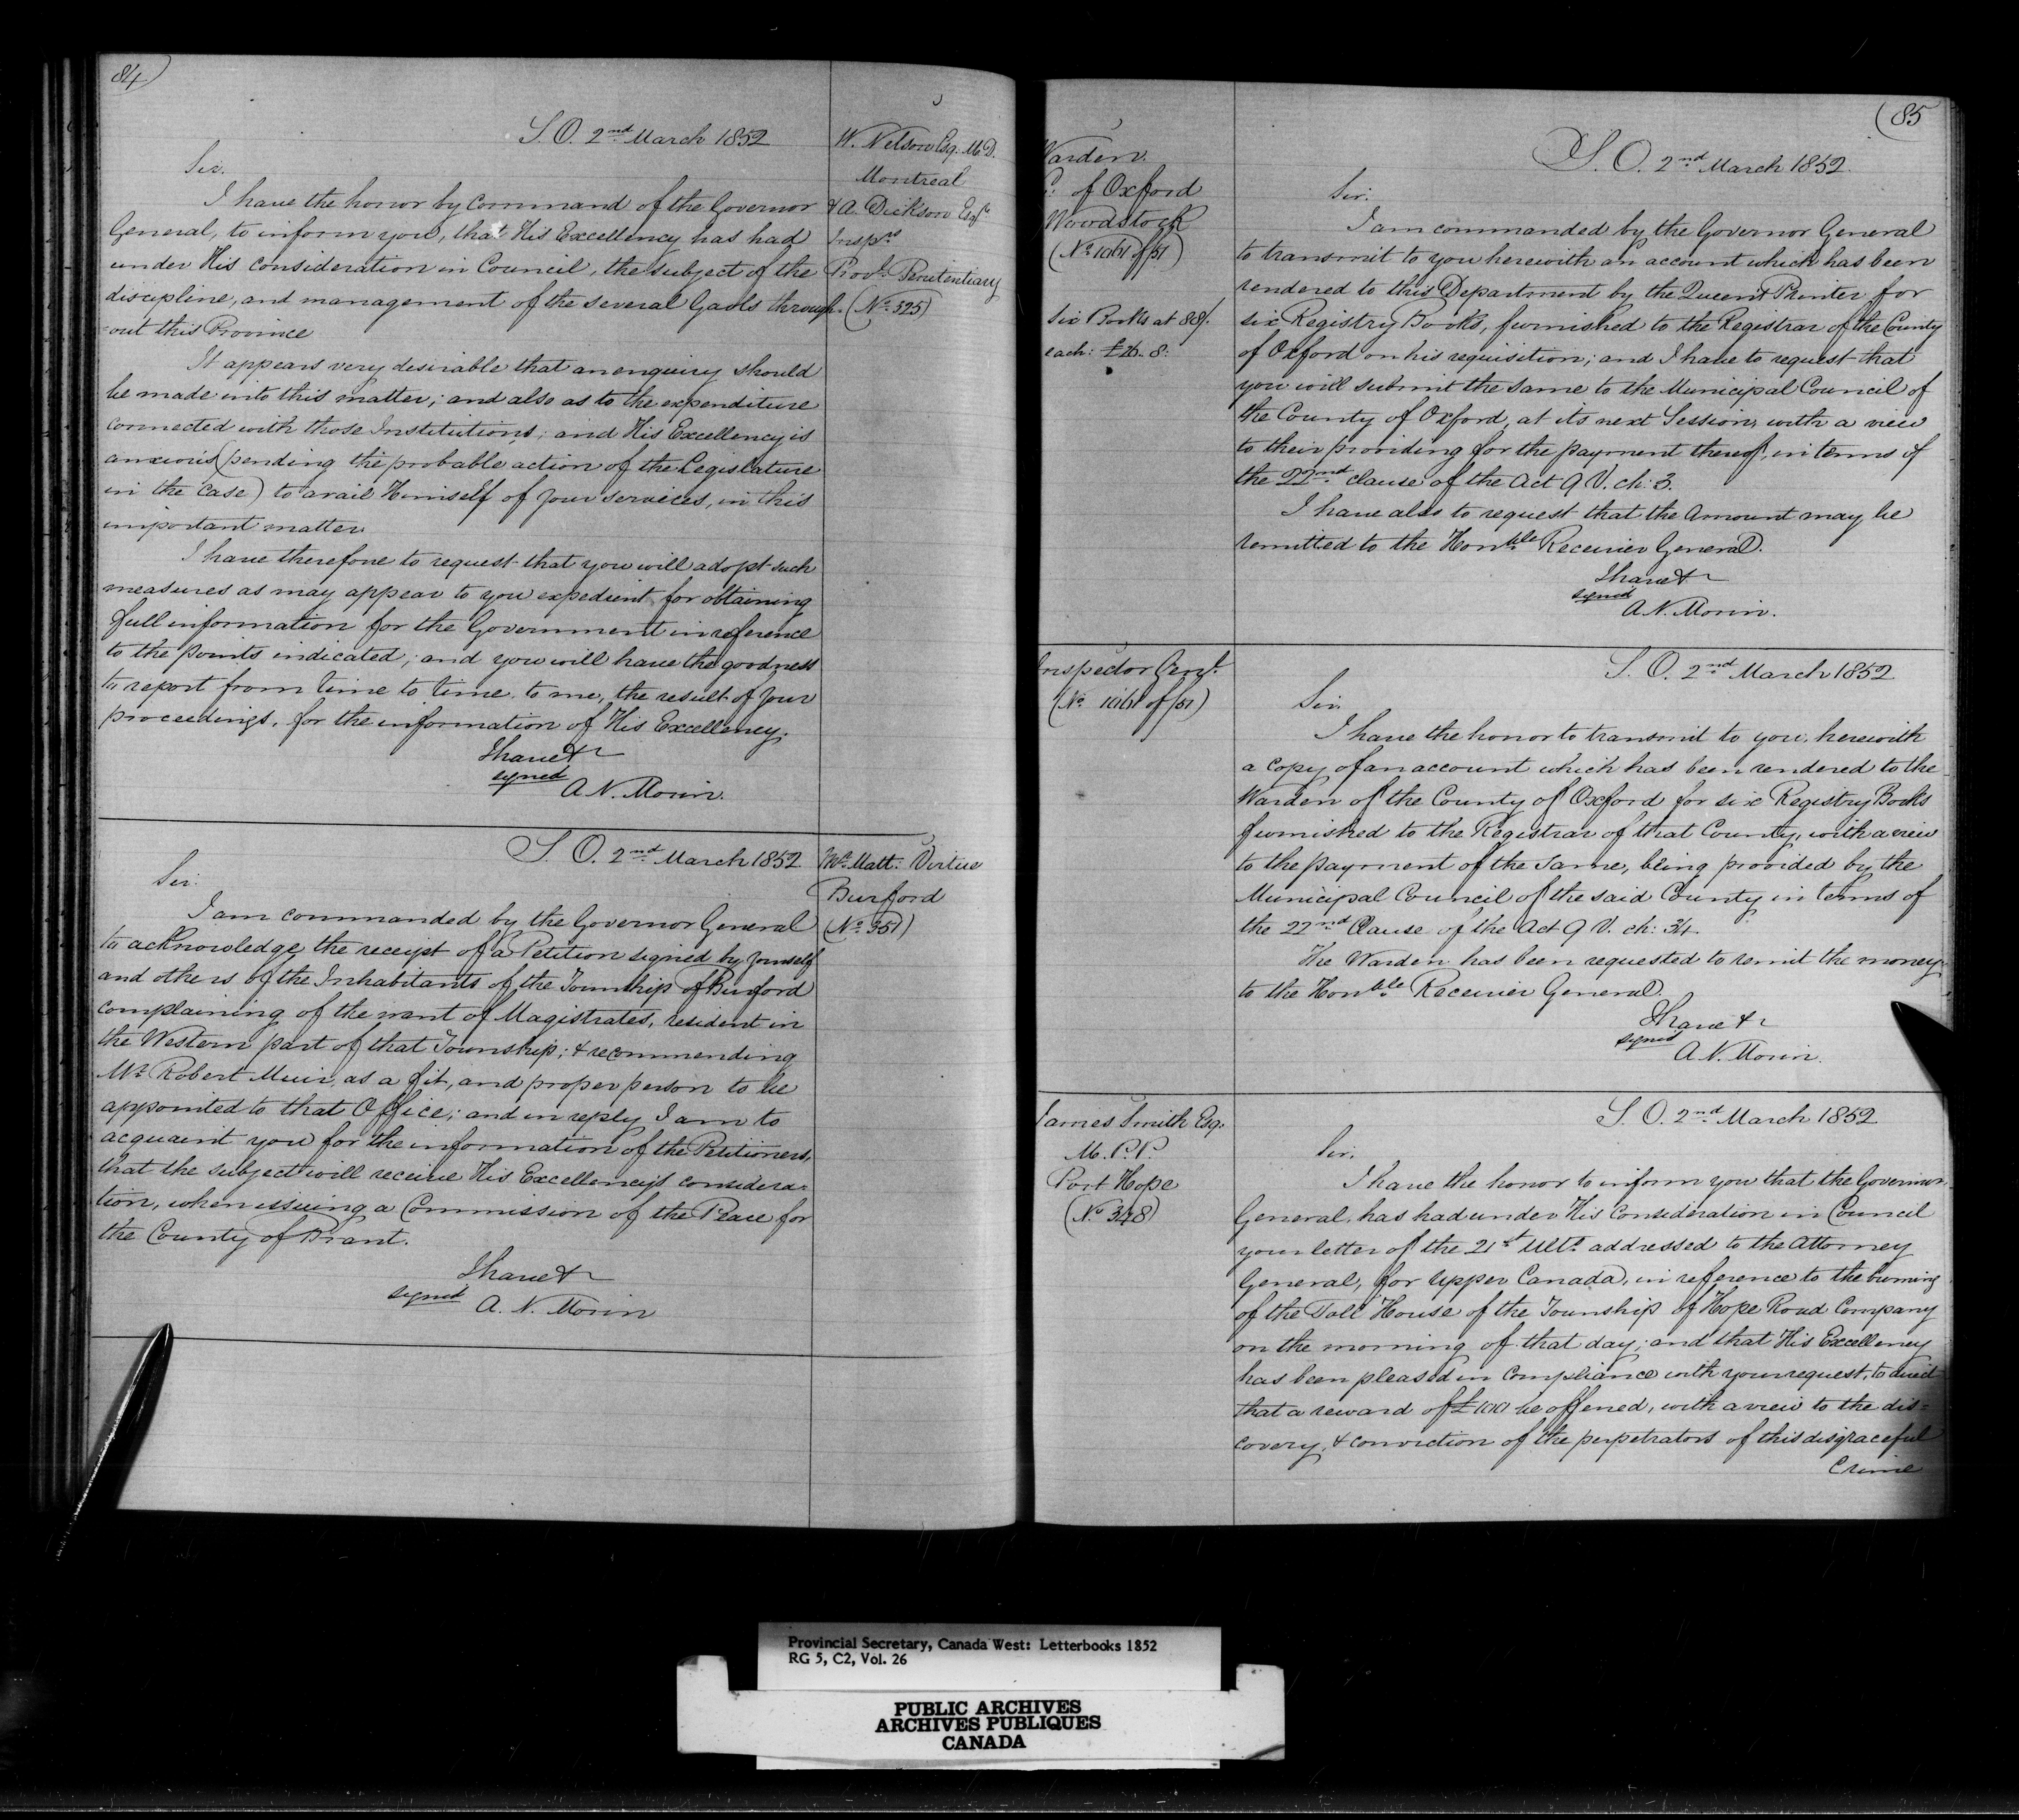 84)
S. O. 2nd March 1852
Sir.
I have the honor by Command of the Governor
General, to inform you, that His Excellency has had
under His consideration in Council, the subject of the
discipline, and management of the several Gaols through-
=out this Province
It appears very desirable that an enquiry should
be made into this matter; and also as to the expenditure
connected with those Institutions; and His Excellency is
anxious (pending the probable action of the Legislature
in the Case) to avail Himself of your services, in this
important matter.
I have therefore to request that you will adopt such
measures as may appear to you expedient for obtaining
full information for the Government in reference
to the points indicated; and you will have the goodness
to report from time to time to me, the result of your
proceedings, for the information of His Excellency.
I have &c
signed
A. N. Morin.
W. Nelson Esq. M.D.
Montreal
& A. Dickson Esqr
Insprs
Provl. Penitentiary
(No. 325)
S. O. 2nd March 1852
Sir.
I am commanded by the Governor General
to acknowledge the receipt of a Petition signed by yourself
and others of the Inhabitants of the Township of Burford
complaining of the want of Magistrates, resident in
the Western part of that Township; & recommending
Mr. Robert Muir, as a fit, and proper person to be
appointed to that Office; and in reply I am to
acquaint you for the information of the Petitioners,
that the subject will receive His Excellency's considera-
tion, when issuing a Commission of the Peace for
the County of Brant.
I have &c
signed
A. N. Morin
Mr. Matt. Virtue
Burford
(No. 351)
(85
Warden
C. of Oxford
Woodstock
(No. 1061 of /51)
Six Books at 88/.
each: £26. 8:
S. O. 2nd March 1852.
Sir.
I am commanded by the Governor General
to transmit to you herewith an account which has been
rendered to this Department by the Queen's Printer for
six Registry Books, furnished to the Registrar of the County
of Oxford on his requisition; and I have to request that
you will submit the same to the Municipal Council of
the County of Oxford, at its next Session, with a view
to their providing for the payment thereof, in terms of
the 22nd clause of the Act 9 V. ch: 3.
I have also to request that the Amount may be
remitted to the Honble Receiver General.
I have &c
signed
A. N. Morin.
Inspector Genl.
(No. 1061 of /51)
S. O. 2nd March 1852
Sir.
I have the honor to transmit to you, herewith
a copy of an account which has been rendered to the
Warden of the County of Oxford for six Registry Books
furnished to the Registrar of that County, with a view
to the payment of the same, being provided by the
Municipal Council of the said County in terms of
the 22nd Clause of the Act 9 V. ch: 34.
The Warden has been requested to remit the money
to the Honble Receiver General.
I have &c
signed
A. N. Morin.
James Smith Esq.
M. P. P.
Port Hope
(No. 348)
S. O. 2nd March 1852
Sir.
I have the honor to inform you that the Governor
General, has had under His Consideration in Council
your letter of the 21st Ulto. addressed to the Attorney
General, for Upper Canada, in reference to the burning
of the Toll House of the Township of Hope Road Company
on the morning of that day; and that His Excellency
has been pleased in Compliance with your request, to direct
that a reward of £100 be offered, with a view to the dis=
covery, & conviction of the perpetrators of this disgraceful
Crime
Provincial Secretary, Canada West: Letterbooks 1852
RG 5, C2, Vol. 26
PUBLIC ARCHIVES
ARCHIVES PUBLIQUES
CANADA